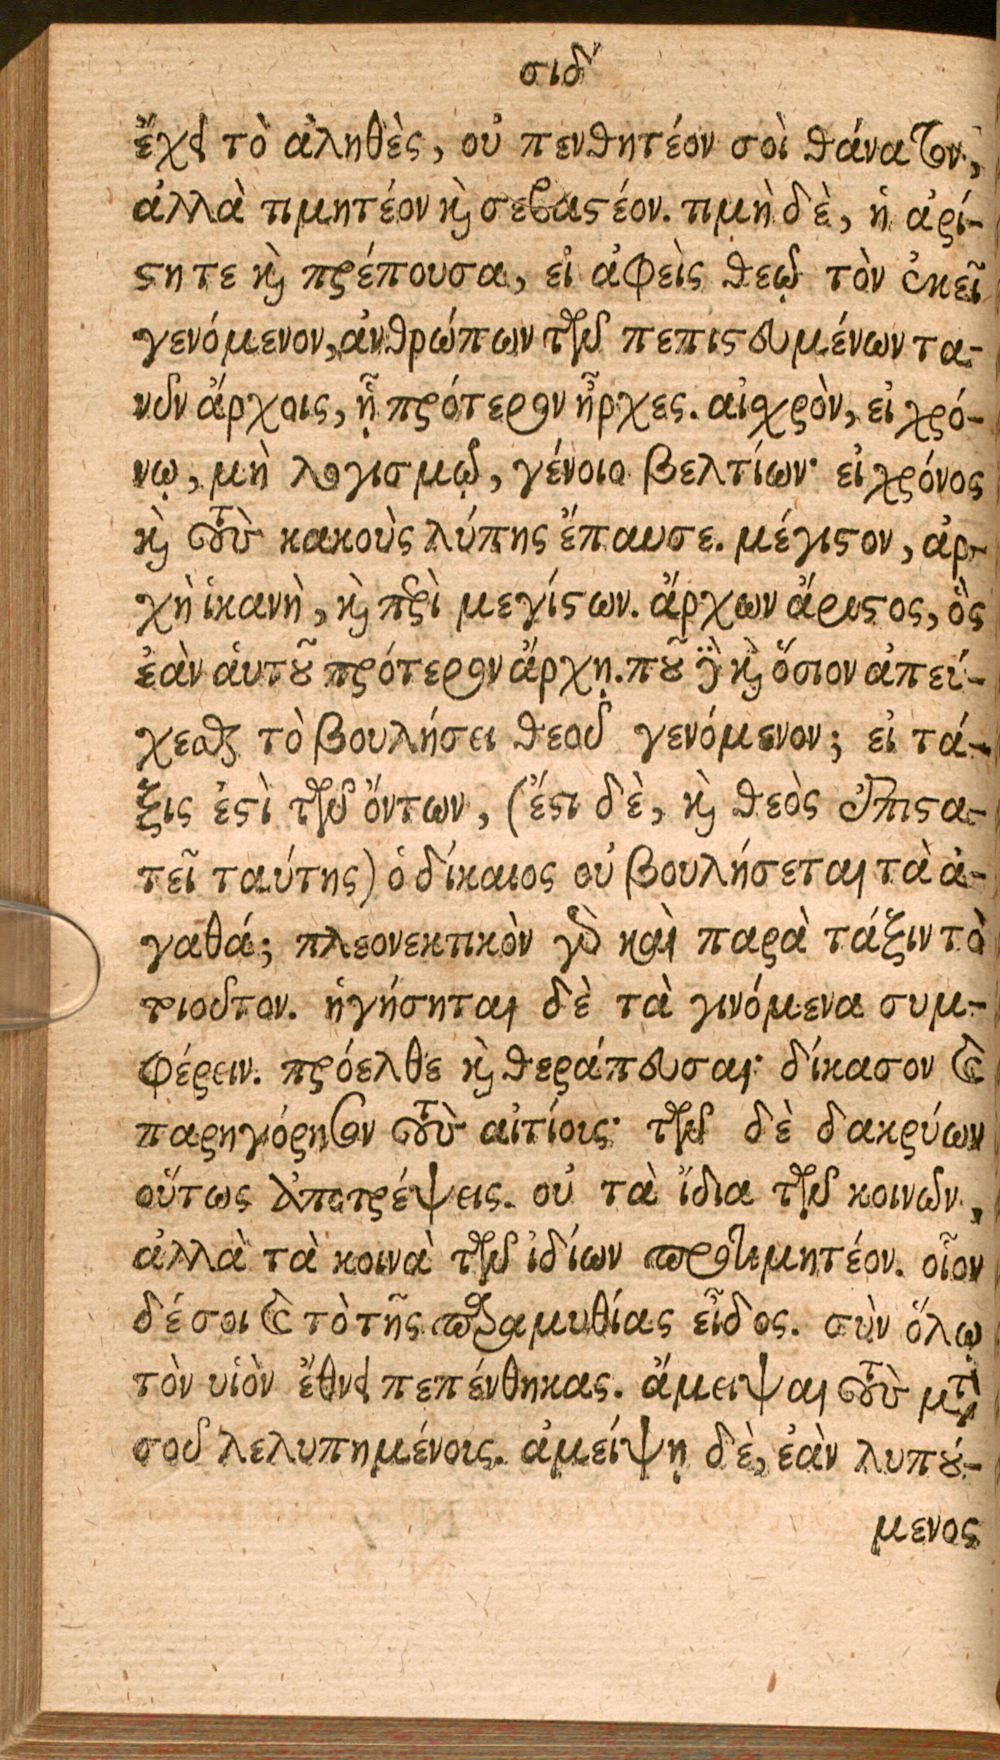 σιδʹ
ἔχει τὸ ἀληθὲς, οὐ πενθητέον σοὶ θάνατον,
ἀλλὰ τιμητέον καὶ σεβαστέον. τιμὴ δὲ, ἡ ἀρί-
στη τε καὶ πρέπουσα, εἰ ἀφεὶς θεῷ τὸν ἐκεῖ
γενόμενον, ἀνθρώπων τῶν πεπιστευμένων τα-
νῦν ἄρχοις, ᾗ πρότερον ἦρχες. αἰσχρὸν, εἰ χρό-
νῳ, μὴ λογισμῷ, γένοιο βελτίων· εἰ χρόνος
καὶ τοὺς κακοὺς λύπης ἔπαυσε. μέγιστον, ἀρ-
χὴ ἱκανὴ, καὶ περὶ μεγίστων. ἄρχων ἄριστος, ὃς
ἐὰν ἁυτοῦ πρότερον ἄρχῃ. ποῦ δὲ καὶ ὅσιον ἀπεύ-
χεσθαι τὸ βουλήσει θεοῦ γενόμενον; εἰ τά-
ξις ἐστὶ τῶν ὄντων, (ἔστι δὲ, καὶ θεὸς ἐπιστα-
τεῖ ταύτης) ὁ δίκαιος οὐ βουλήσεται τὰ ἀ-
γαθά; πλεονεκτικὸν γὰρ καὶ παρὰ τάξιν τὸ
τοιοῦτον. ἡγήσηται δὲ τὰ γινόμενα συμ-
φέρειν. πρόελθε καὶ θεράπευσαι· δίκασον καὶ
παρηγόρησον τοὺς αἰτίοις· τῶν δὲ δακρύων
οὕτως ἀποτρέψεις. οὐ τὰ ἴδια τῶν κοινῶν,
ἀλλὰ τὰ κοινὰ τῶν ἰδίων προτιμητέον. οἷον
δέ σοι καὶ τὸ τῆς παραμυθίας εἶδος. σὺν ὅλῳ
τὸν υἱὸν ἔθνει πεπένθηκας. ἄμειψαι τοὺς μετὰ
σοῦ λελυπημένοις. ἀμείψῃ δὲ, ἐὰν λυπού-
μενος